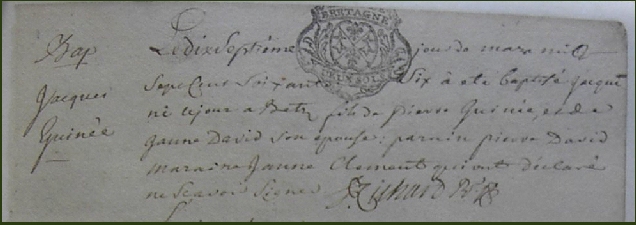 Bap
Jacques
Guinée
BRETAGNE
Le dix Septième jour de mars mil
Sept Cent Soixante Six à eté baptisé Jacque
né ce jour a fils de pierre Guinée, et de
Janne David Son epouse: parain pierre David
maraine Janne Clement qui ont déclaré
ne Scavoir Signer Richard